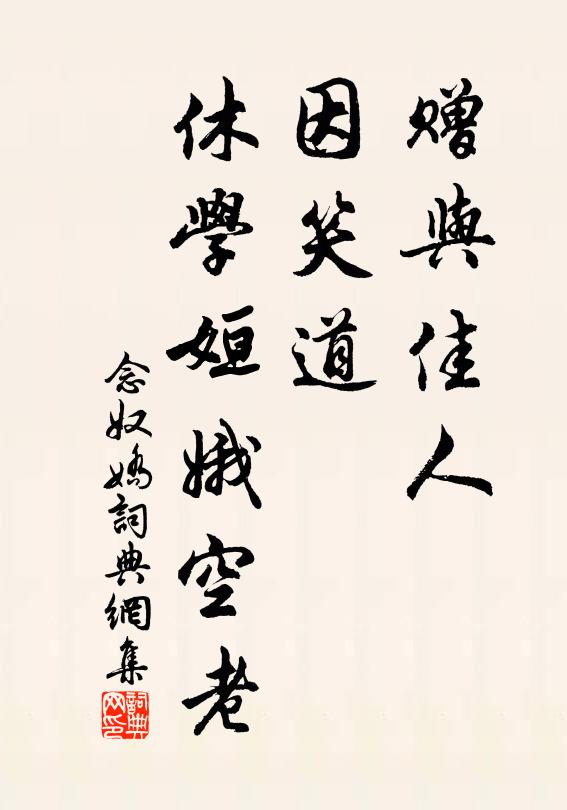 贈與佳人
因笑道
休學姮娥空老
念奴嬌詞典網集
詞典
网印